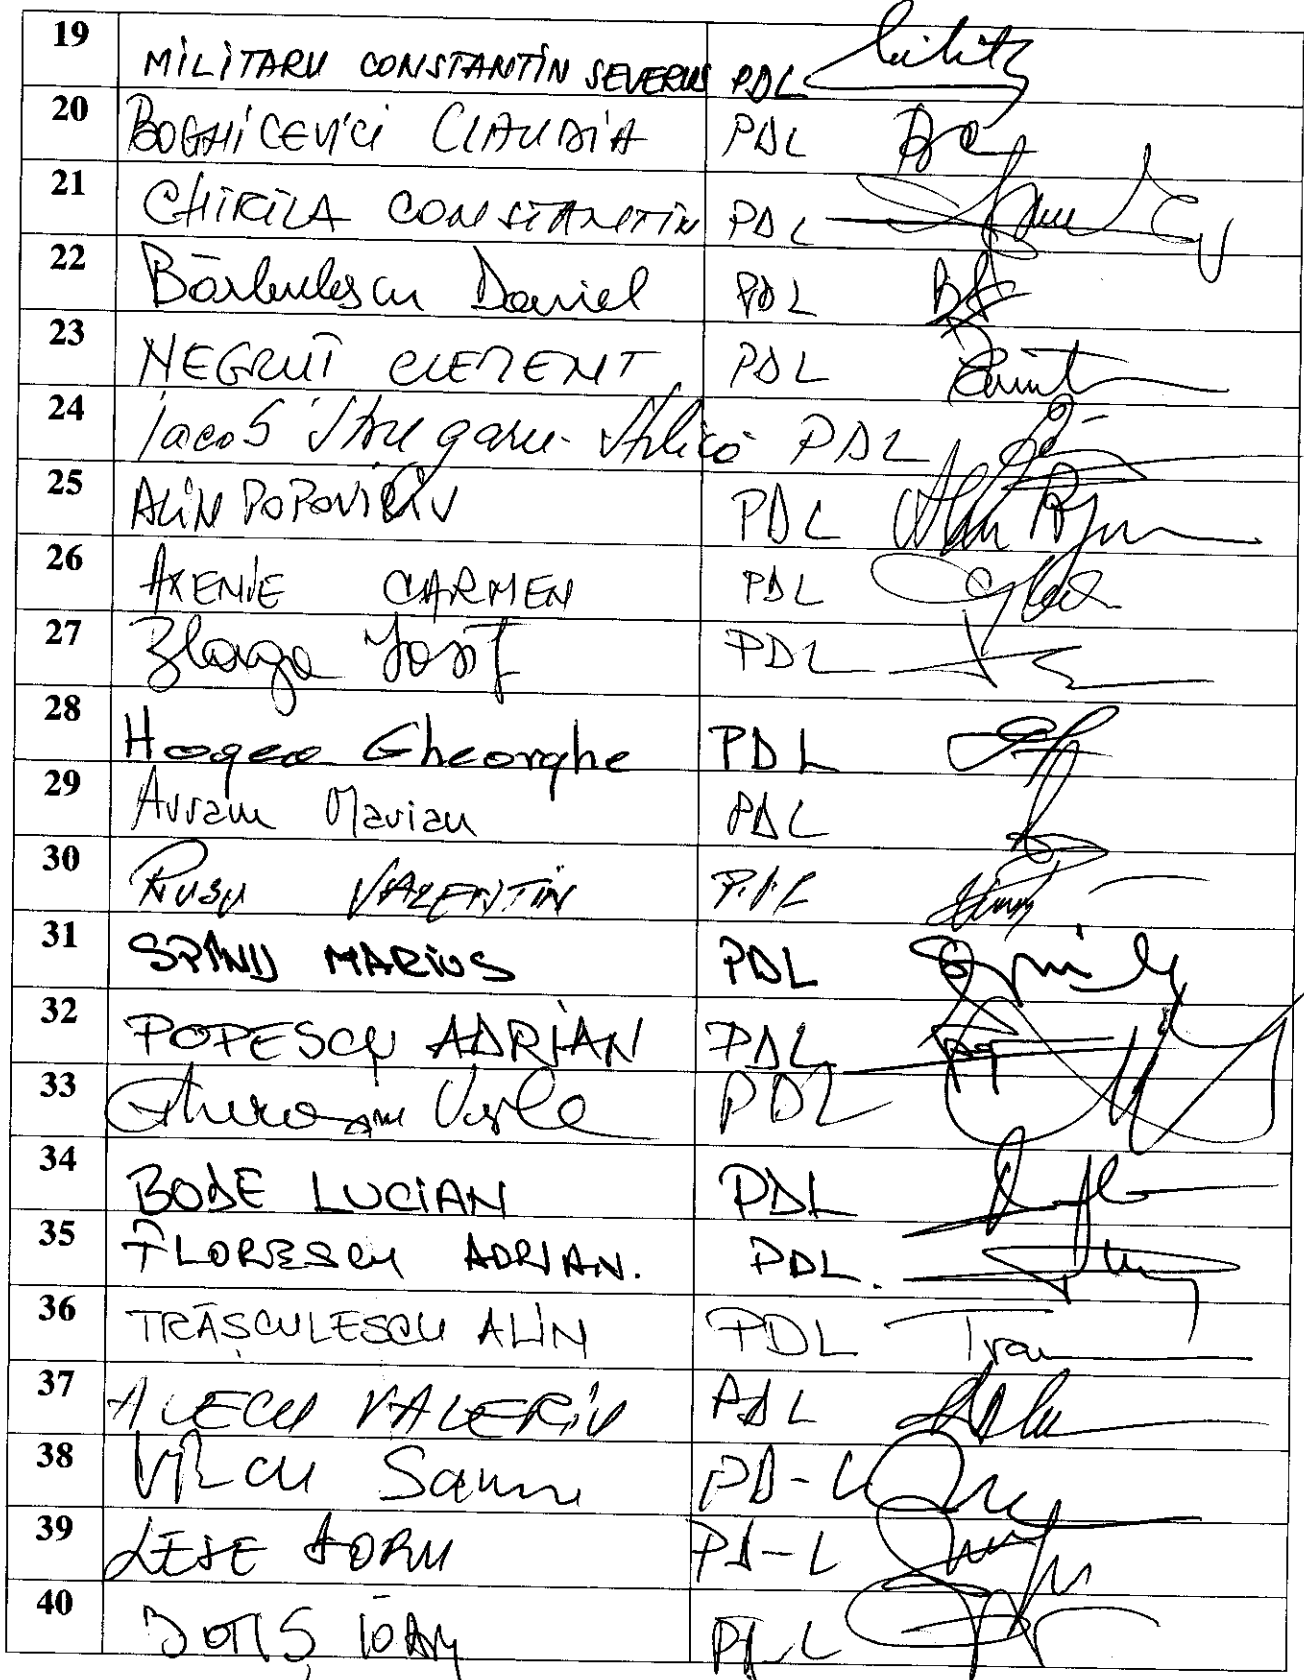 19 MILITARU CONSTANTIN SEVERUS PDL
20 BOGHICEVICI CLAUDIA PDL
21 CHIRILA CONSTANTIN PDL
22 Bărbulescu Daniel PDL
23 NEGRUȚ CLEMENT PDL
24 Iacob Strugaru Stelică PDL
25 ALIN POPOVICIU PDL
26 AXENIE CARMEN PDL
27 Blaga Iosif PDL
28 Hogea Gheorghe PDL
29 Avram Marian PDL
30 RUSU VALENTIN PDL
31 SPÎNU MARIUS PDL
32 POPESCU ADRIAN PDL
33 Gherasim Vasile PDL
34 BODE LUCIAN PDL
35 FLORESCU ADRIAN. PDL.
36 TRĂȘCULESCU ALIN PDL
37 ALECU VALERIU PDL
38 VÎLCU PD-L
39 LEȘE DORU PD-L
40 IOAN